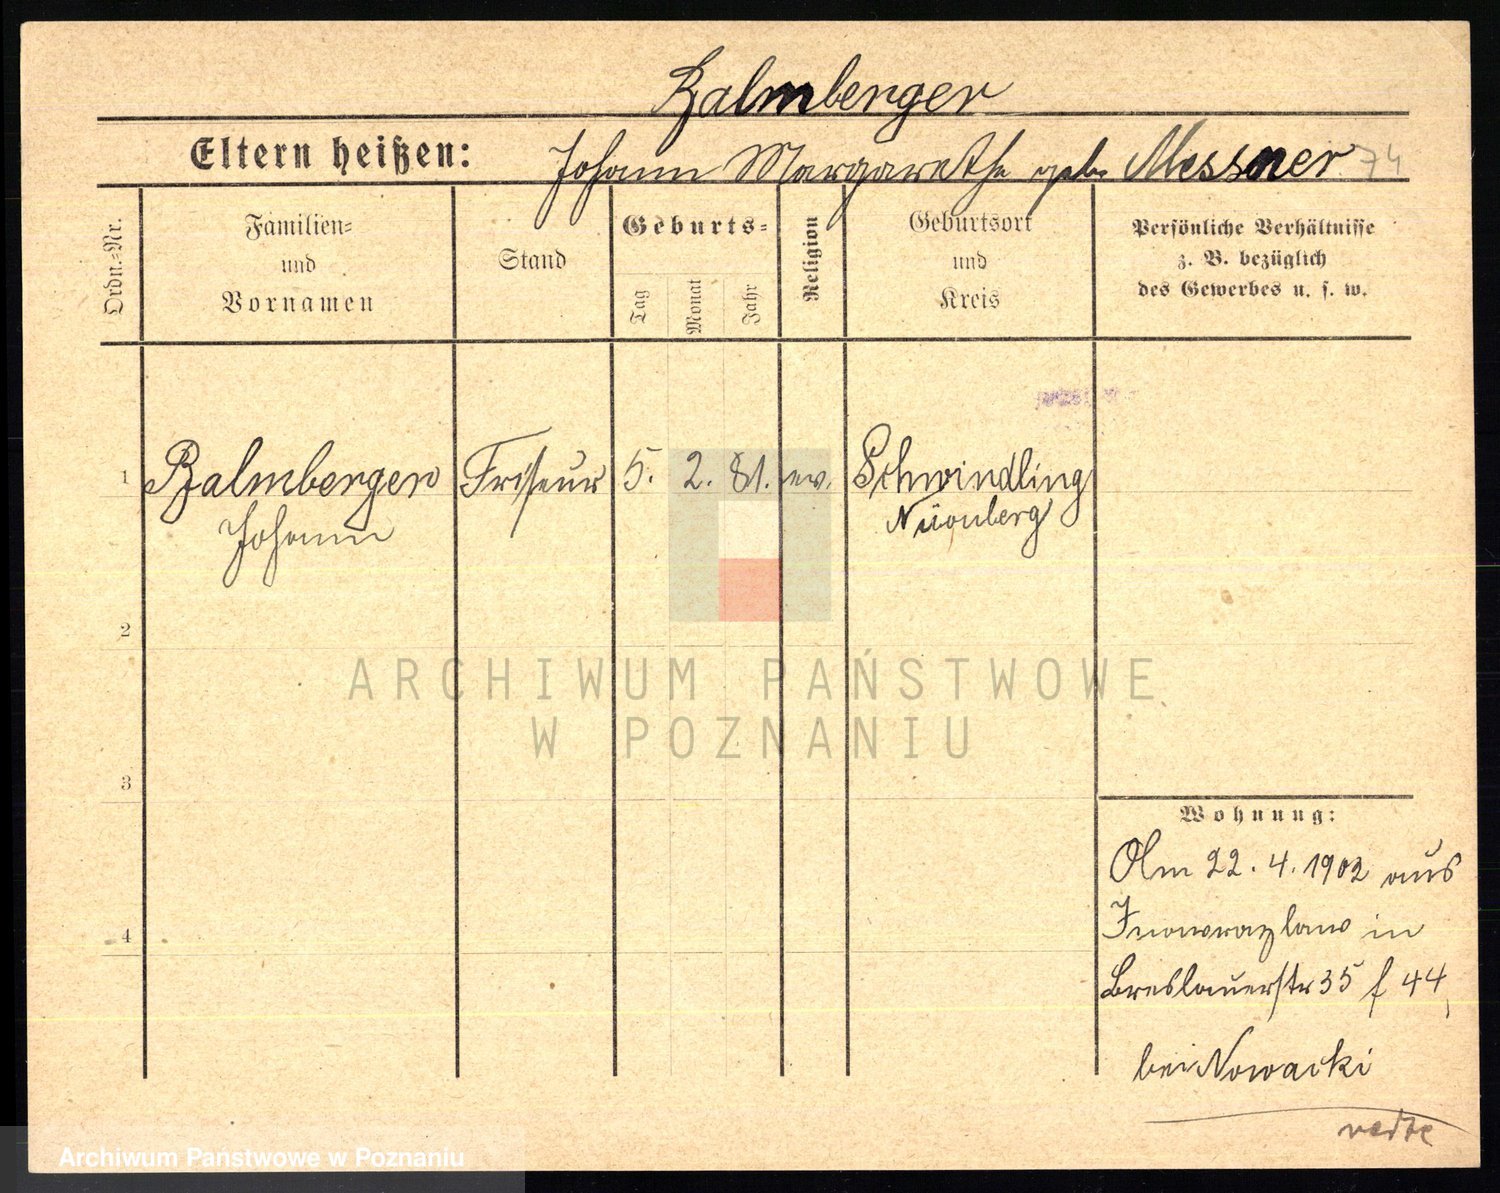 Balmberger
Eltern heißen: Johann Margarethe geb. Messner 74
Ordn.=Nr.
Familien=
und
Vornamen
Stand
Geburts=
Tag
Monat
Jahr
Religion
Geburtsort
und
Kreis
Persönliche Verhältnisse
z. B. bezüglich
des Gewerbes u. s. w.
1 Balmberger Friseur 5. 2. 81. ev. Schwindling
Johann Nürnberg
2
ARCHIWUM PAŃSTWOWE
W POZNANIU
3
4
Wohnung:
Am 22. 4. 1902 aus
Inowrazlaw in
Breslauerstr 35 f 44
bei Nowacki
Archiwum Państwowe w Poznaniu